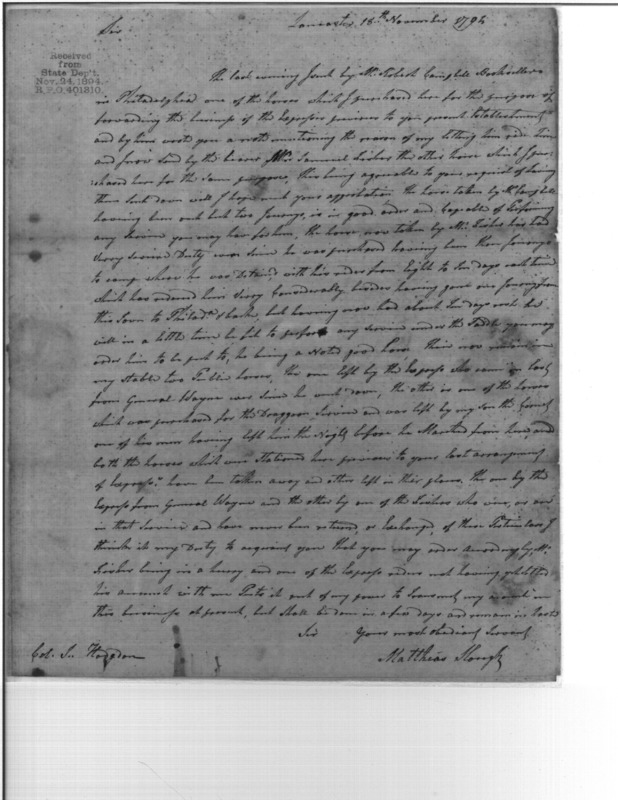 Sir Lancaster 18th November 1794
Received
from
State Dep't.
Nov. 24, 1894
R.P.O. 401310.
The last evening sent by Mr. Robert Campbell Bookseller
in Philadelphia one of the horses which I purchased here for the purpose of
forwarding the business of the Expresses previous to your present Establishment
and by him wrote you a note mentioning the reason of my letting him have him
and now send by the bearer Mr. Samuel the other horse which I pur-
chased here for the same purpose, this being agreeable to your request of having
them sent down will I hope meet your approbation the horse taken by Mr. Campbell
having been out but two Journeys, is in good order and Capable of performing
any service you may have for him, the horse now taken by Mr. has had
Very severe Duty ever since he was purchased having been three Journeys
to camp where he was Detained with his riders from Eight to Ten days each time
which has reduced him Very Considerably besides having gone one Journey from
this Town to Philada. & back, but having now had about Ten days rest he
will in a little time be fit to perform any service under the Saddle you may
order him to be put to, he being a Noted good horse. Their now remain in
my stable two Public horses, the one left by the Express who came in last
from General Wayne ever since he went down, the other is one of the horses
which was purchased for the Draggoon Service and was left by my son the Cornet
one of his men having left him the Night before he Marched from here, and
both the horses which were Stationed here previous to your last arrangement
of Expresses have been taken away and others left in their place, the one by the
Express from General Wayne and the other by one of the who were, or are
in that Service and have never been returned, or Exchanged, of these Particulars I
think it my Duty to acquaint you that you may order Accordingly, Mr.
being in a hurry and one of the Express riders not having settled
his account with me Puts it out of my power to my account in
this business at present, but shall be done in a few days and remain in haste
Sir Your most obedient Servant
Col. S. Hogdon Matthias Slough